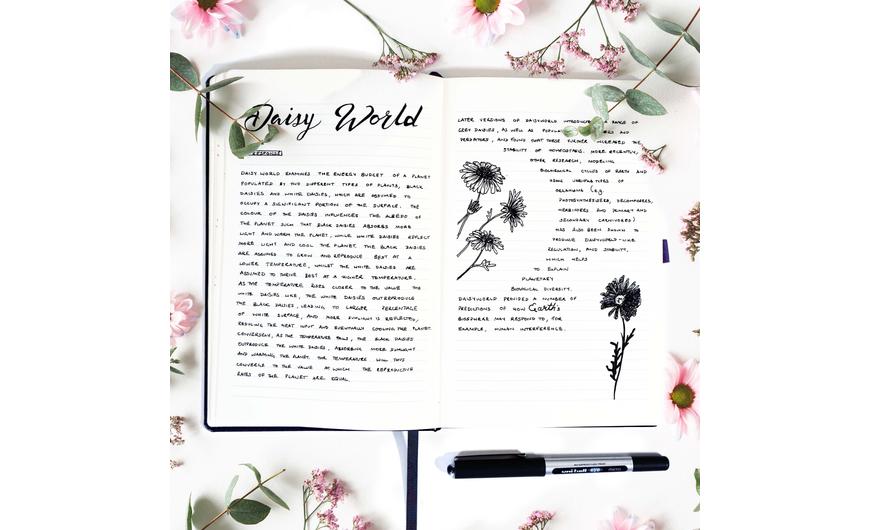 Daisy World
DAISY WORLD EXAMINES THE ENERGY BUDGET OF A PLANET
POPULATED BY TWO DIFFERENT TYPES OF PLANTS, BLACK
DAISIES AND WHITE DAISIES, WHICH ARE ASSUMED TO
OCCUPY A SIGNIFICANT PORTION OF THE SURFACE. THE
COLOUR OF THE DAISIES INFLUENCES THE ALBEDO OF
THE PLANET SUCH THAT BLACK DAISIES ABSORBS MORE
LIGHT AND WARM THE PLANET, WHILE WHITE DAISIES REFLECT
MORE LIGHT AND COOL THE PLANET. THE BLACK DAISIES
ARE ASSUMED TO GROW AND REPRODUCE BEST AT A
LOWER TEMPERATURE, WHILST THE WHITE DAISIES ARE
ASSUMED TO THRIVE BEST AT A HIGHER TEMPERATURE.
AS THE TEMPERATURE RISES CLOSER TO THE VALUE THE
WHITE DAISIES LIKE, THE WHITE DAISIES OUTREPRODUCE
THE BLACK DAISIES, LEADING TO LARGER PERCENTAGE
OF WHITE SURFACE, AND MORE SUNLIGHT IS REFLECTED,
REDUCING THE HEAT INPUT AND EVENTUALLY COOLING THE PLANET.
CONVERSELY, AS THE TEMPERATURE FALLS, THE BLACK DAISIES
OUTPRODUCE THE WHITE DAISIES, ABSORBING MORE SUNLIGHT
AND WARMING THE PLANET. THE TEMPERATURE WILL THUS
CONVERGE TO THE VALUE AT WHICH THE REPRODUCTIVE
RATES OF THE PLANET ARE EQUAL.
LATER VERSIONS OF DAISYWORLD INTRODUCED A RANGE OF
GREY DAISIES, AS WELL AS AND
PREDATORS, AND FOUND THAT THESE FURTHER INCREASED THE
STABILITY OF HOMEOSTASIS. MORE RECENTLY,
OTHER RESEARCH, MODELING
BIOCHEMICAL CYCLES OF EARTH AND
USING VARIOUS TYPES OF
ORGANISMS (eg.
PHOTOSYNTHESISERS, DECOMPOSERS,
HERBIVORES AND PRIMARY AND
SECONDARY CARNIVORES)
HAS ALSO BEEN SHOWN TO
PRODUCE DAISYWORLD-LIKE
REGULATION, AND STABILITY,
WHICH HELPS
TO EXPLAIN
PLANETARY
BIOLOGICAL DIVERSITY.
DAISYWORLD PROVIDES A NUMBER OF
PREDICTIONS OF HOW Earth's
BIOSPHERE MAY RESPOND TO, FOR
EXAMPLE, HUMAN INTERFERENCE.
uni-ball eye